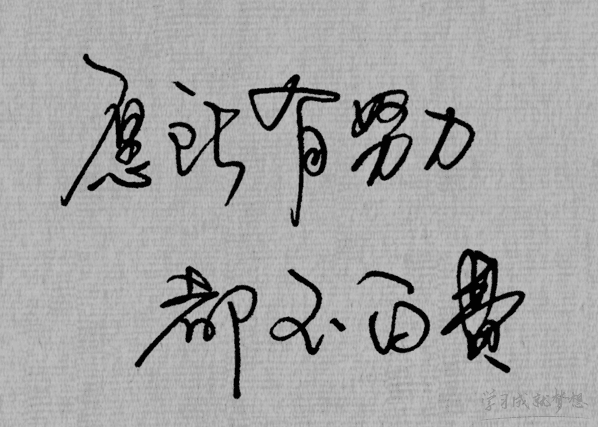 愿所有努力
都不白费
学习成就梦想